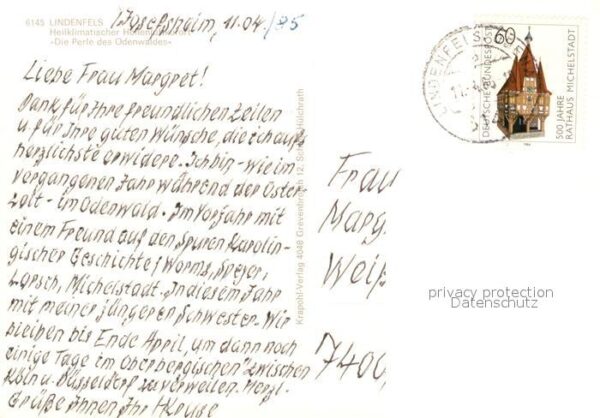 6145 LINDENFELS
Heilklimatischer Höhenluftkurort
»Die Perle des Odenwaldes«
11.04./85
Liebe Frau Margret!
Dank für Ihre freundlichen Zeilen
u. für Ihre guten Wünsche, die ich aufs
herzlichste erwidere. Ich bin - wie im
vergangenen Jahr während der Oster-
zeit - im Odenwald. Im Vorjahr mit
einem Freund auf den Spuren Karolin-
gischer Geschichte; Worms, Speyer,
Lorsch, Michelstadt. In diesem Jahr
mit meiner jüngeren Schwester. Wir
bleiben bis Ende April, um dann noch
einige Tage im Oberbergischen" zwischen
Köln u. Düsseldorf zu verweilen. Herzl.
Grüße Ihnen Ihr H Kruse
Krapohl-Verlag 4048 Grevenbroich 12, Schloß Hülchrath
LINDENFELS
60
DEUTSCHE BUNDESPOST
500 JAHRE
RATHAUS MICHELSTADT
1984
Frau
Marg
Weiß
7400
privacy protection
Datenschutz